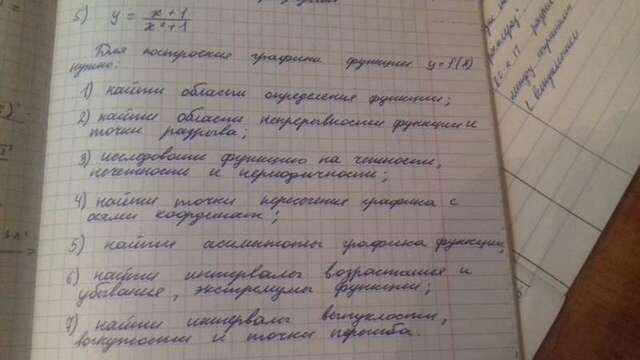 5) y = (x+1)/(x²+1)
Для построения графика функции y=f(x)
нужно:
1) найти область определения функции;
2) найти области непрерывности функции и
точки разрыва;
3) исследовать функцию на четность,
нечетность и периодичность;
4) найти точки пересечения графика с
осями координат;
5) найти асимптоты графика функции;
6) найти интервалы возрастания и
убывания, экстремумы функции;
7) найти интервалы выпуклости,
вогнутости и точки перегиба.